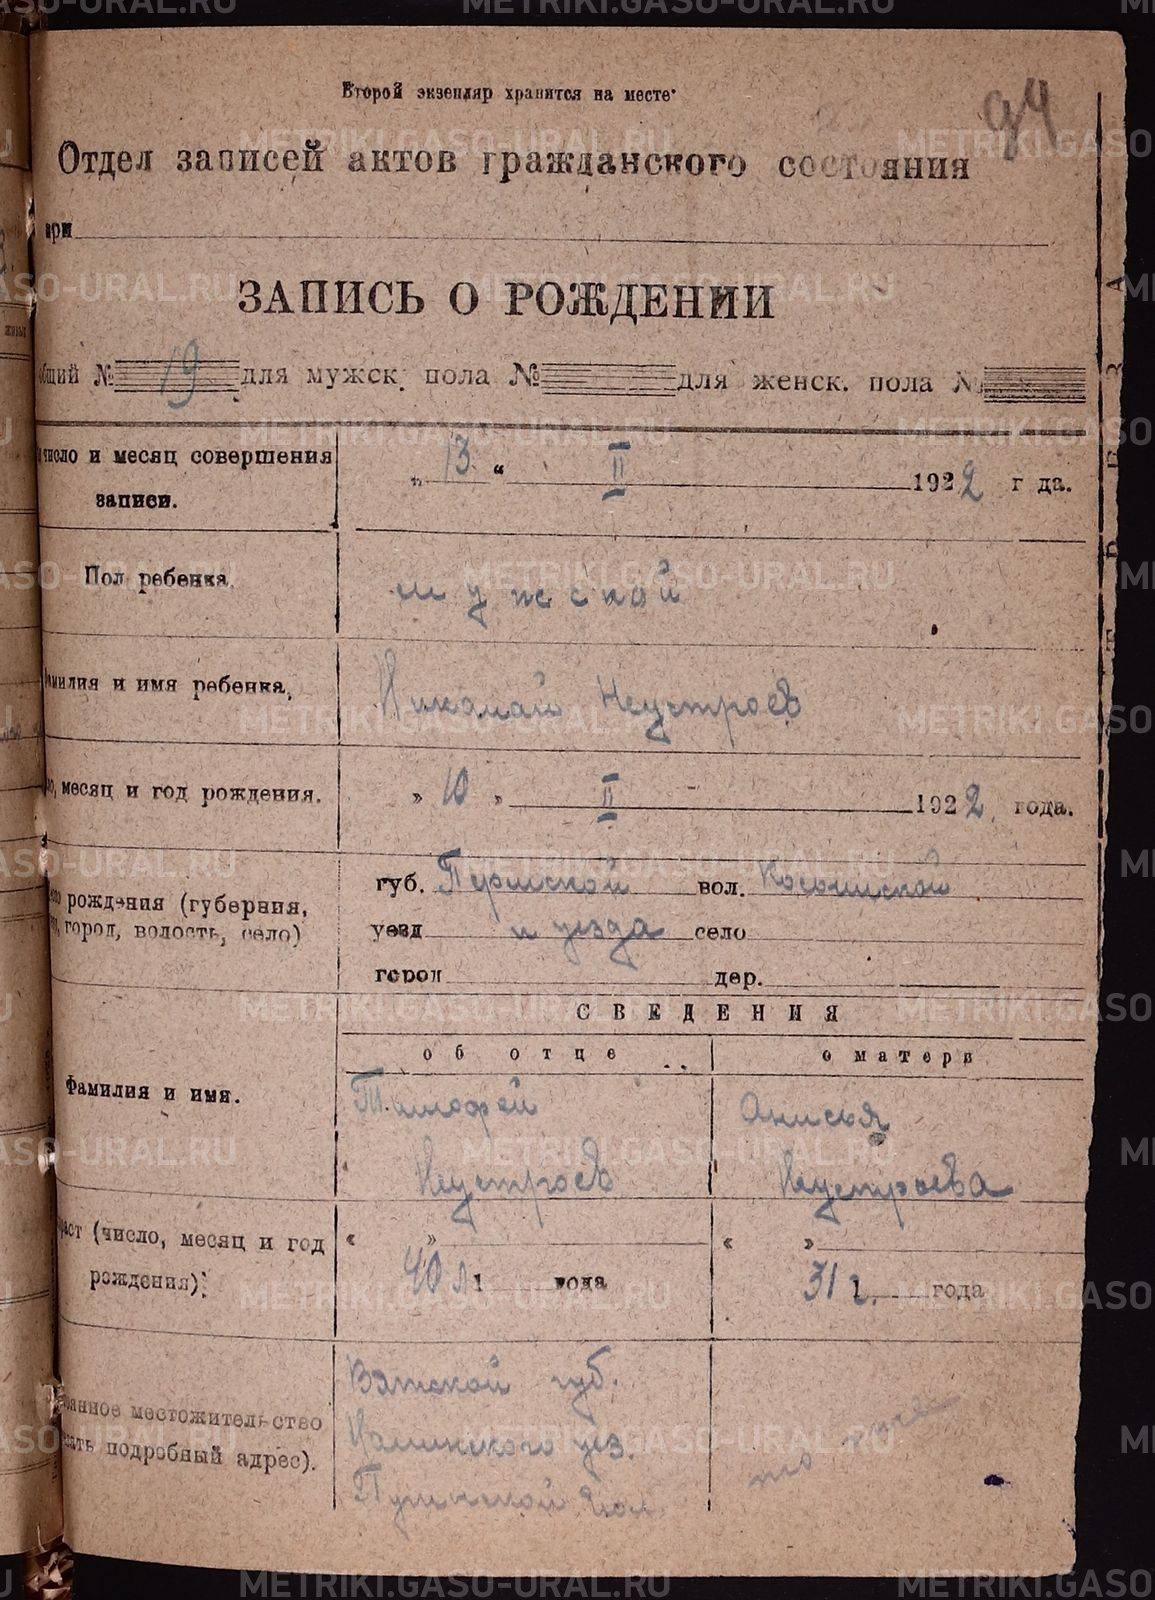 Второй экземпляр хранится на месте.
94
Отдел записей актов гражданского состояния
при
ЗАПИСЬ О РОЖДЕНИИ
общий № 19 для мужск. пола № для женск. пола №
число и месяц совершения записи.
„ 13 “ II 1922 г да.
Пол ребенка.
мужской
Фамилия и имя ребенка.
Николай Неустроев
месяц и год рождения.
» 10 » II 1922 года.
рождения (губерния, город, волость, село)
губ. Пермской вол.
уезд и уезда село
город дер.
СВЕДЕНИЯ
об отце
о матери
Фамилия и имя.
Тимофей
Неустроев
Анисья
Неустроева
(число, месяц и год рождения).
« » 40 л 1 года
« » 31 г. 1 года
местожительство
подробный адрес).
Вятской губ.
уез.
вол.
то же
METRIKI.GASO-URAL.RU